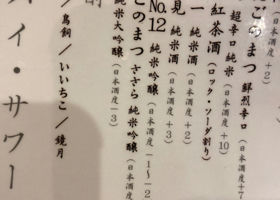 (日本酒度+2)
このまつ 鮮烈辛口 (日本酒度+7
超辛口 純米 (日本酒度+10
紅茶酒 (ロック・ソーダ割り)
一 純米酒 (日本酒度+2
見 純米酒 (日本酒度+3
No.12 純米吟醸 (日本酒度-1〜-2
このまつ ささら 純米吟醸 (日本酒度
純米大吟醸 (日本酒度-3)
/鳥飼/いいちこ/鏡月
イ・サワー